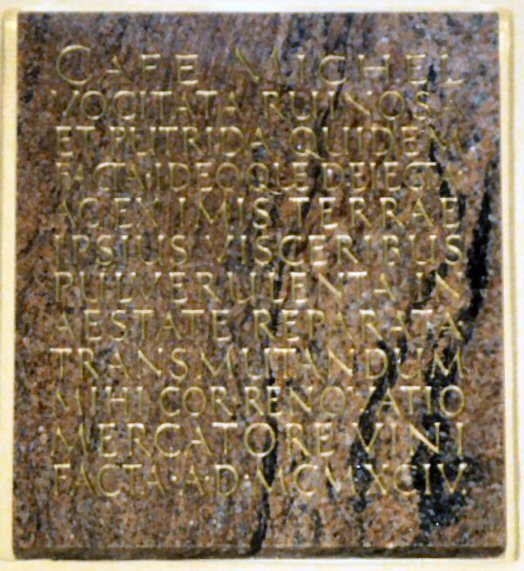 CAFE MICHEL
VOCITATA RUINOSA
ET PUTRIDA QUIDEM
FACTA·IDEOQUE DEIECTA
AC EX IMIS TERRAE
IPSIUS VISCERIBUS
PULVERULENTA IN
AESTATE REPARATA
TRANSMUTANDUM
MIHI COR RENOVATIO
MERCATORE VINI
FACTA·A·D·MCMXCIV.